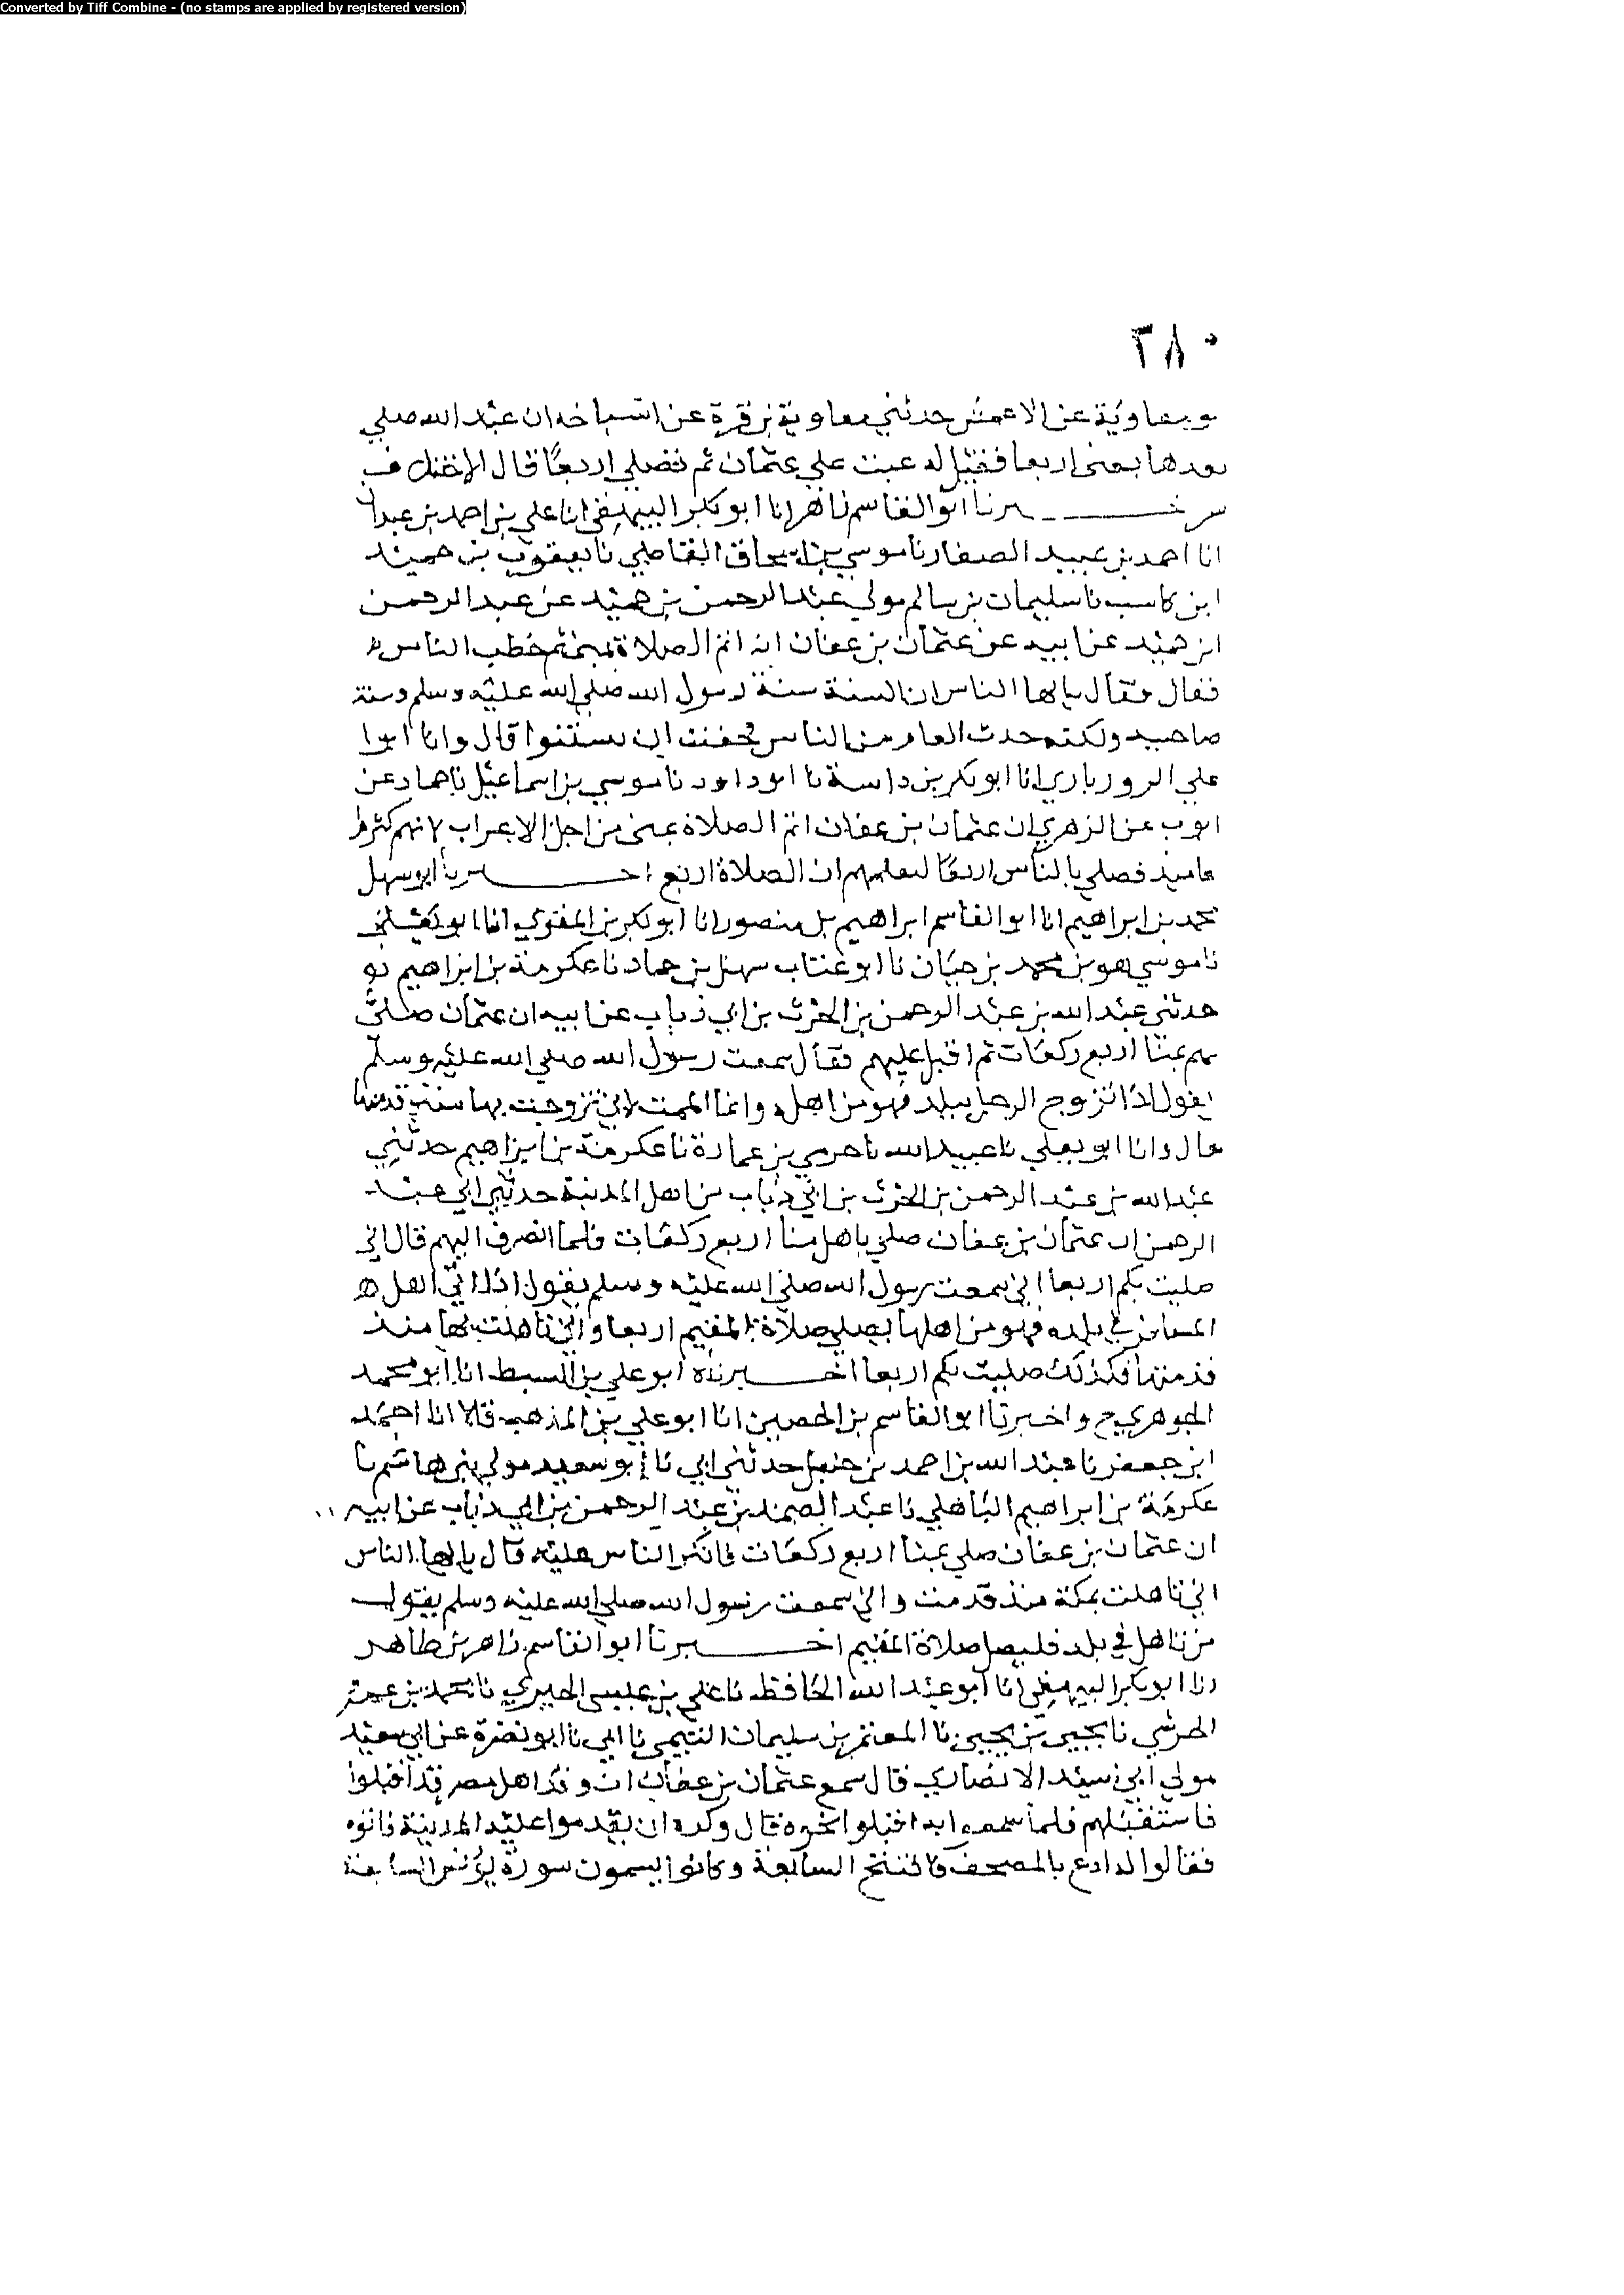 Converted by Tiff Combine - (no stamps are applied by registered version)
٣٨٠
بو معاوية عن الاعمش حدثني معاوية بن قرة عن اشياخه ان عبد الله صلي
بعدها بمنى اربعا فقيل له عبت علي عثمان ثم تصلي اربعا قال الخلاف
شر برنا ابو القاسم زاهر انا ابو بكر البيهقي انا علي بن احمد بن عبدان
انا احمد بن عبيد الصفار نا موسي بن اسحاق القاضي نا يعقوب بن حميد
ابن كاسب نا سليمان بن سالم مولي عبد الرحمن بن حميد عن عبد الرحمن
ابن حميد عن ابيه عن عثمان بن عفان انه اتم الصلاة بمنى ثم خطب الناس
فقال يايها الناس ان السنة سنة رسول الله صلي الله عليه وسلم وسنة
صاحبيه ولكنه حدث العام من الناس فخفت ان يستنوا قال وانا ابوا
علي الروذباري انا ابو بكر بن داسة نا ابو داود نا موسي بن اسماعيل نا حماد عن
ايوب عن الزهري ان عثمان بن عفان اتم الصلاة بمنى من اجل الاعراب لانهم كثروا
عاميذ فصلي بالناس اربعا ليعلمهم ان الصلاة اربع اخـــبرنا ابو سهل
محمد بن ابراهيم انا ابو القاسم ابراهيم بن منصور انا ابو بكر بن المقري انا ابو يعلي
نا موسي هو بن محمد بن حيان نا ابو عتاب سهل بن حماد نا عكرمة بن ابراهيم
حدثني عبد الله بن عبد الرحمن بن الحرث بن ابي ذباب عن ابيه ان عثمان صلي
بهم بمنا اربع ركعات ثم اقبل عليهم فقال سمعت رسول الله صلي الله عليه وسلم
يقول اذا تزوج الرجل ببلد فهو من اهله وانما اتممت لاني تزوجت بها منذ قدمتها
قال وانا ابو يعلي نا عبيد الله نا حرمي بن عمارة نا عكرمة بن ابراهيم حدثني
عبد الله بن عبد الرحمن بن الحرث بن ابي ذباب من اهل المدينة حدثني ابي عبد
الرحمن ان عثمان بن عفان صلي باهل منا اربع ركعات فلما انصرف اليهم قال اني
صليت بكم اربعا اني سمعت رسول الله صلي الله عليه وسلم يقول اذا
المسافر في بلده فهو من اهلها يصلي صلاة المقيم اربعا واني تاهلت بها منذ
قدمتها فكذلك صليت بكم اربعا اخـــبرناه ابو علي بن السبط انا ابو محمد
الجوهري ح واخبرنا ابو القاسم بن الحصين انا ابو علي بن المذهب قالا انا احمد
ابن جعفر نا عبد الله بن احمد بن حنبل حدثني ابي نا ابو سعيد مولي بني هاشم نا
عكرمة بن ابراهيم الباهلي نا عبد الصمد بن عبد الرحمن بن ابي ذباب عن ابيه
ان عثمان بن عفان صلي بمنا اربع ركعات فانكر الناس عليه فقال يايها الناس
اني تاهلت بمكة منذ قدمت واني سمعت رسول الله صلي الله عليه وسلم يقول
من تاهل في بلد فليصل صلاة المقيم اخـــبرنا ابو القاسم زاهر بن طاهر
انا ابو بكر البيهقي انا ابو عبد الله الحافظ نا علي بن عيسى الحيري نا محمد بن عمرو
الحرشي نا يحيى بن يحيى نا المعتمر بن سليمان التيمي نا ابي نا ابو نضرة عن ابي سعيد
مولي ابي اسيد الانصاري قال سمع عثمان بن عفان ان وفد اهل مصر قد اقبلوا
فاستقبلهم فلما سمعوا به اقبلوا نحوه قال وكره ان يقدموا عليه المدينة فاتوه
فقالوا له ادع بالمصحف فافتتح السابعة وكانوا يسمون سورة يونس السابعة